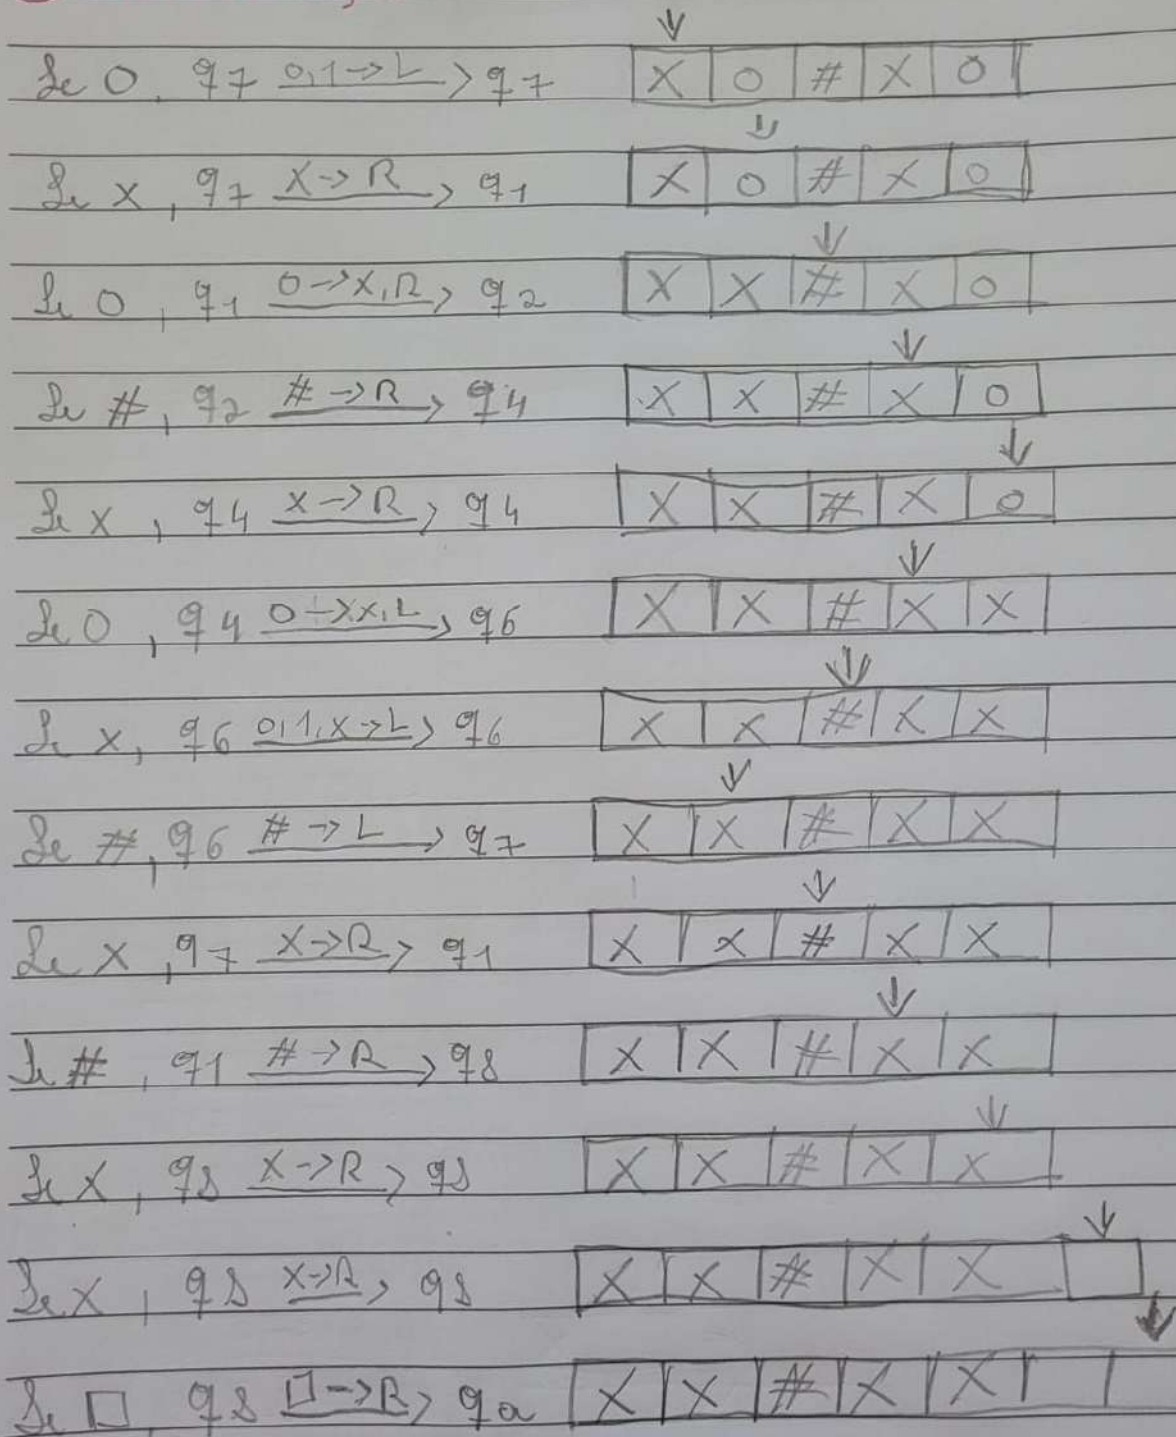 Le 0, q7 0,1→L> q7 ↓ X | 0 | # | X | 0
Le X, q7 X→R> q1 ↓ X | 0 | # | X | 0
Le 0, q1 0→X,R> q2 ↓ X | X | # | X | 0
Le #, q2 #→R> q4 ↓ X | X | # | X | 0
Le X, q4 X→R> q4 ↓ X | X | # | X | 0
Le 0, q4 0→X,L> q6 ↓ X | X | # | X | X
Le X, q6 0,1,X→L> q6 ↓ X | X | # | X | X
Le #, q6 #→L> q7 ↓ X | X | # | X | X
Le X, q7 X→R> q1 ↓ X | X | # | X | X
Le #, q1 #→R> q8 ↓ X | X | # | X | X
Le X, q8 X→R> q8 ↓ X | X | # | X | X
Le X, q8 X→R> q8 ↓ X | X | # | X | X |
Le □, q8 □→R> qa ↓ X | X | # | X | X | |